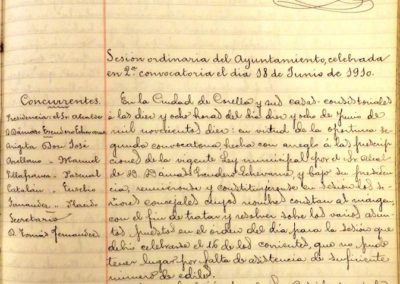 Sesión ordinaria del Ayuntamiento, celebrada
en 2ª convocatoria el día 18 de Junio de 1910.
Concurrentes.
Presidencia del Sr. Alcalde
D. Dámaso Escudero Echevarria
Don José
Arellano - Manuel
Villafranca - Pascual
Catalán - Eusebio
Fernandez -
Secretario
D. Tomás Fernandez
En la Ciudad de Corella y sus casas consistoriales
á las diez y ocho horas del día diez y ocho de Junio de
mil novecientos diez: en virtud de la oportuna se-
gunda convocatoria, hecha con arreglo á las prescrip-
ciones de la vigente Ley municipal por el Sr. Alcal-
de D. Dámaso Escudero Echevarria, y bajo su presiden-
cia, reunieronse y constituyeronse en sesión los se-
ñores concejales cuyos nombres constan al margen,
con el fin de tratar y resolver sobre los varios asun-
tos puestos en el orden del día, para la sesión que
debió celebrarse el 16 de los corrientes, que no pudo
tener lugar por falta de asistencia de suficiente
número de ediles.